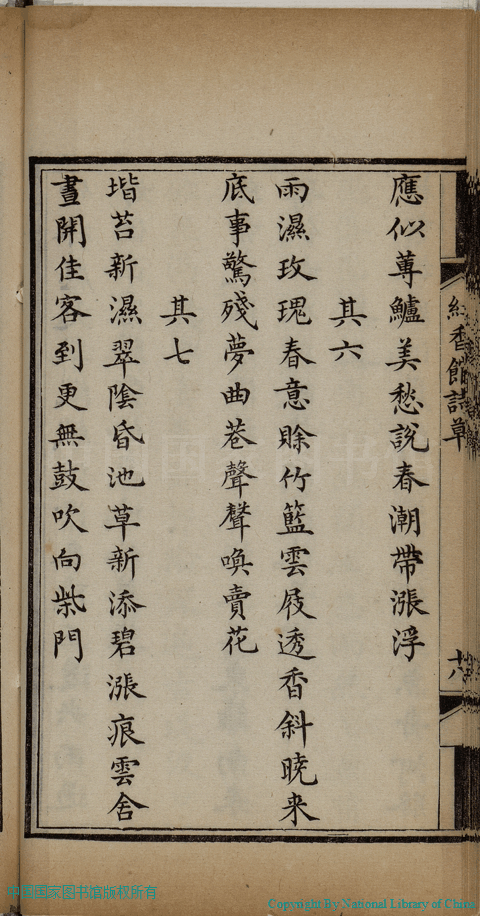 應似蓴鱸美愁說春潮帶漲浮
其六
雨濕玫瑰春意賖竹籃雲屐透香斜曉来
底事驚殘夢曲巷聲聲喚賣花
其七
堦苔新濕翠陰昏池草新添碧漲痕雲舍
晝開佳客到更無鼓吹向柴門
香館詩草
十八
中国国家图书馆版权所有
Copyright By National Library of China